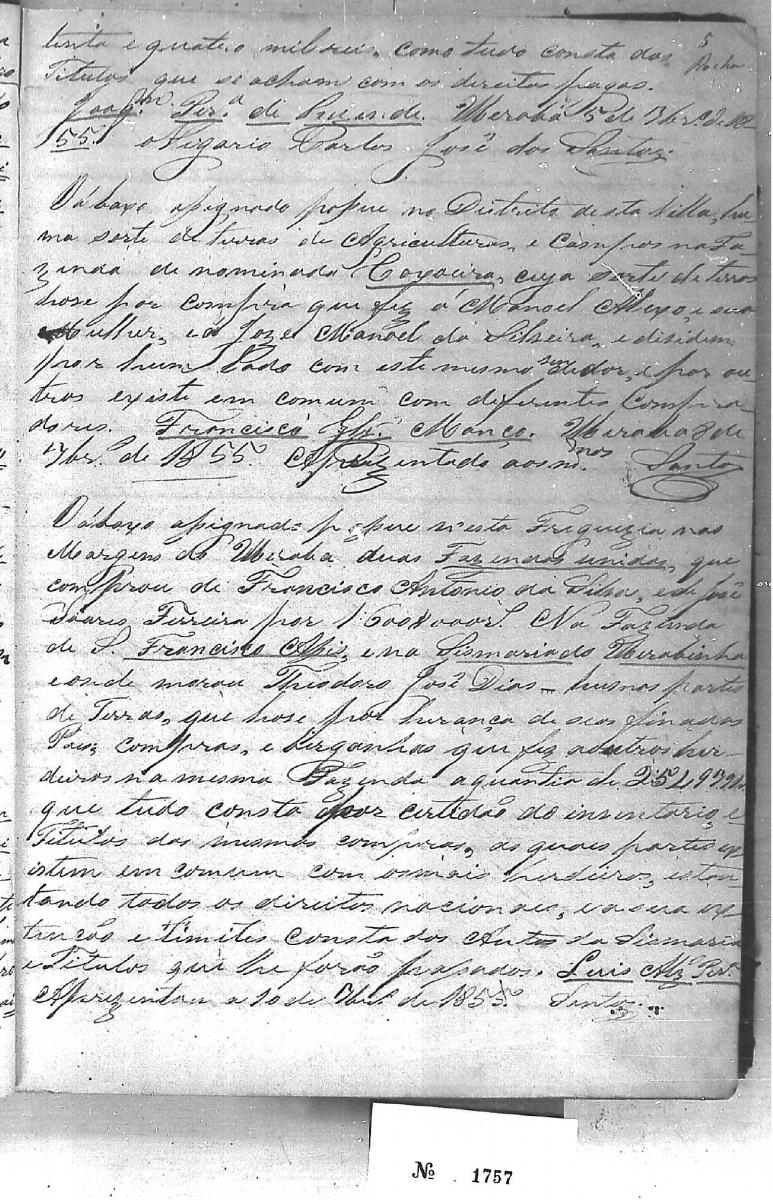 5
Rocha
tenta e quatro mil reis, como tudo consta dos
Titulos que se acham com os direitos pagos.
Joaqm. Perª de Rezende. Uberaba 5 de 7br.º de 18
55. o Vigario Carlos José dos Santos.
O abaxo assignado possue no Destrito desta Villa, hu
ma sorte de terras de Agriculturas, e Campos na Fa
zenda de nominada Caxoeira, cuja sorte de terras
hove por compra que fez á Manoel Alexo, e sua
Mulher, e á Joze Manoel da Silveira, e dividem
por hum lado com este mesmo vendedor, e por ou
tros existe em comum com deferentes Compra
dores. Francisco Manço. Uberaba 8 de
7br.º de 1855. Aprezentado aos mnos Santos
O abaxo assignado possue n'esta Freguezia nas
Margens do Uberaba duas Fazendas unidas, que
comprou de Francisco Antonio da Silva, e de José
Soares Ferreira por 1600$000rs. Na Fazenda
de S. Francisco Assis, e na Sismaria do Uberabinha
e onde morou Theodoro José Dias humas partes
de Terras, que hove por herança de seos finados
Pais, compras, e berganhas que fez a outros her
deiros na mesma Fazenda a quantia de
que tudo consta por certidão do inventario, e
Titulos das mesmas compras, as quaes partes ex
istem em comum com os mais herdeiros,
tando todos os direitos nacionaes, e a sua ex
tenção e limites consta dos Autos da Sismaria
e Titulos que lhe forão passados. Luis Alz Perª.
Aprezentou a 10 de 7br.º de 1855. Santos
Nº 1757